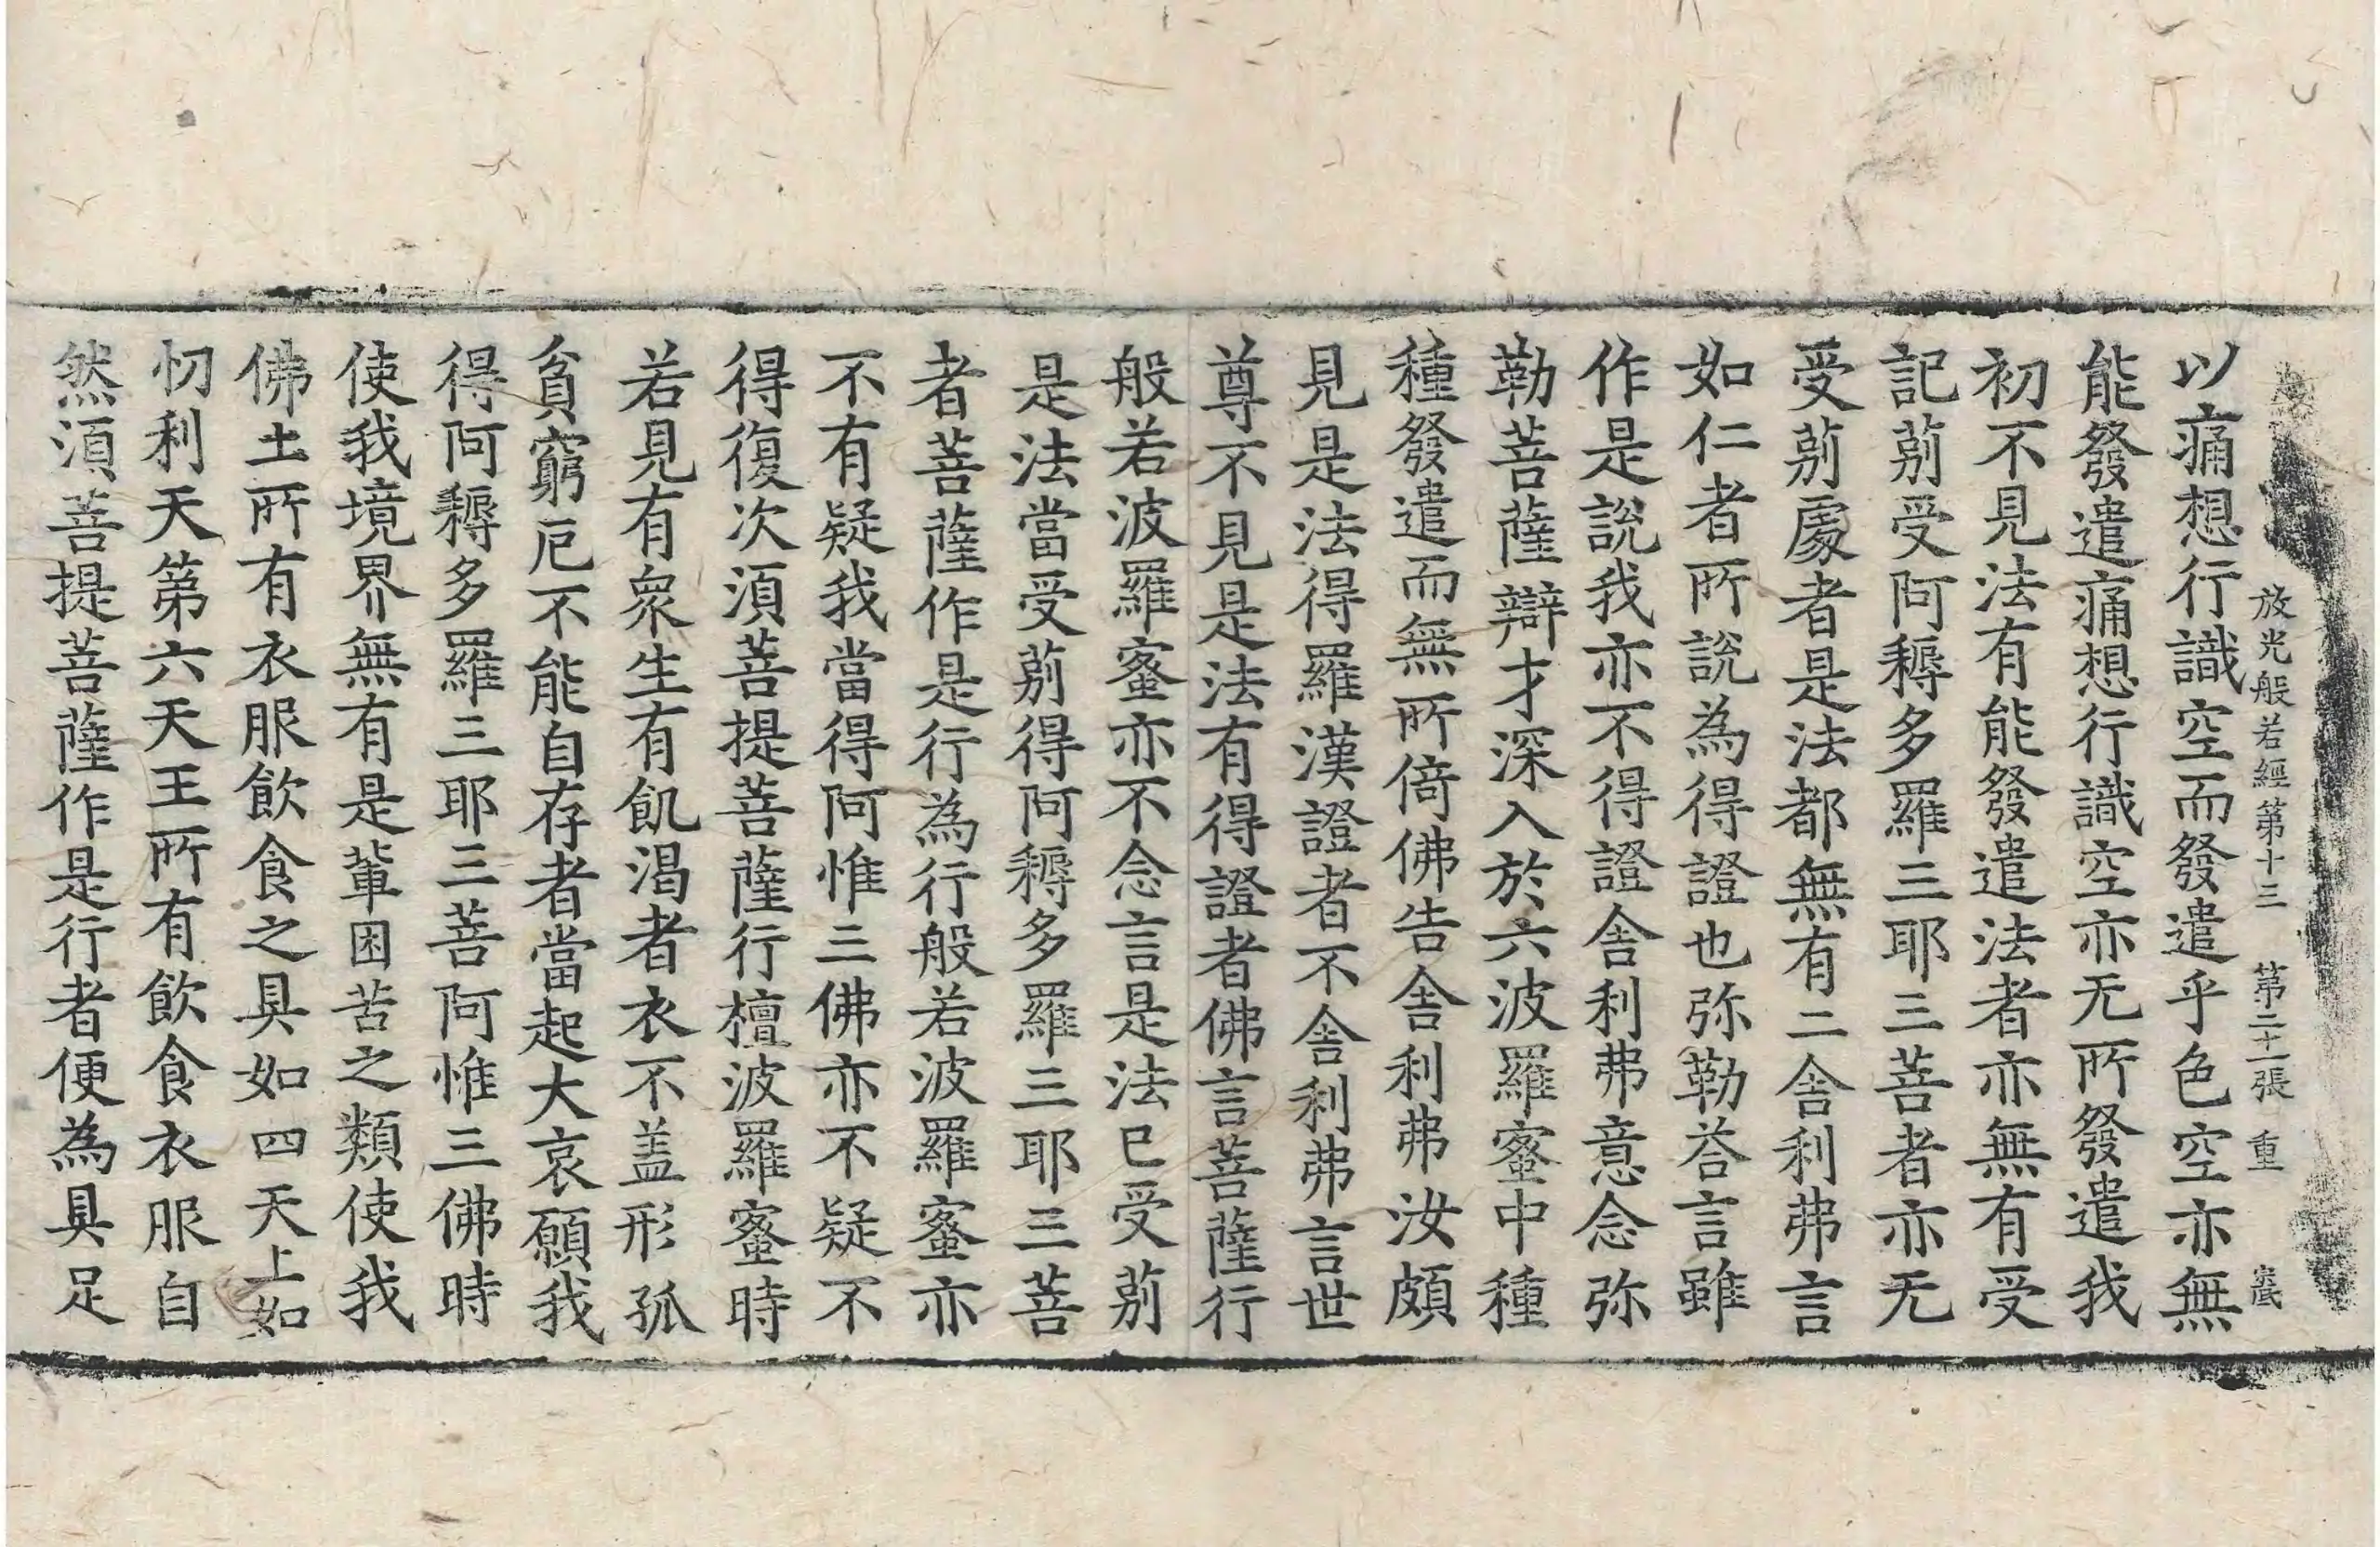 放光般若經第十三　第二十一張　重
以痛想行識空而發遣乎色空亦無
能發遣痛想行識空亦无所發遣我
初不見法有能發遣法者亦無有受
記莂受阿耨多羅三耶三菩者亦无
受莂處者是法都無有二舍利弗言
如仁者所說為得證也弥勒荅言雖
作是說我亦不得證舍利弗意念弥
勒菩薩辯才深入於六波羅蜜中種
種發遣而無所倚佛告舍利弗汝頗
見是法得羅漢證者不舍利弗言世
尊不見是法有得證者佛言菩薩行
般若波羅蜜亦不念言是法已受莂
是法當受莂得阿耨多羅三耶三菩
者菩薩作是行為行般若波羅蜜亦
不有疑我當得阿惟三佛亦不疑不
得復次須菩提菩薩行檀波羅蜜時
若見有衆生有飢渴者衣不盖形孤
貧窮厄不能自存者當起大哀願我
得阿耨多羅三耶三菩阿惟三佛時
使我境界無有是輩困苦之類使我
佛土所有衣服飲食之具如四天上如
忉利天第六天王所有飲食衣服自
然須菩提菩薩作是行者便為具足